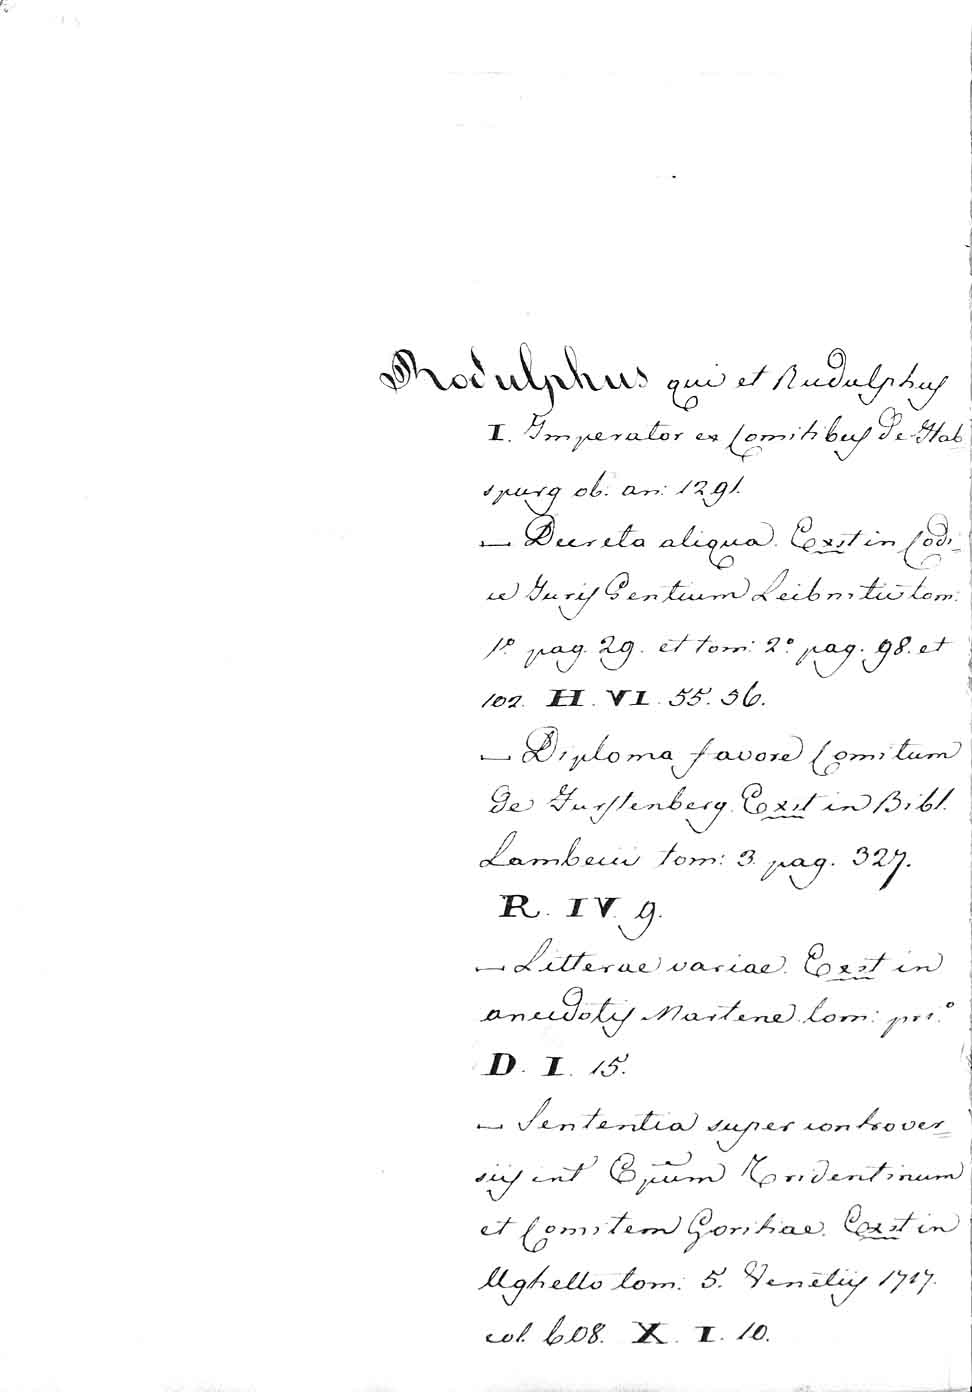 Rodulphus qui et Rudulphus
I. Imperator ex Comitibus de Hab=
spurg ob: an: 1291.
— Decreta aliqua. Exst in Codi=
ce Juris Gentium Leibnitii tom:
1º pag. 29. et tom: 2º pag. 98. et
102. H. VI. 55. 56.
— Diploma favore Comitum
de Furstenberg. Exst in Bibl.
Lambecii tom: 3. pag. 327.
R. IV. 9.
— Litterae variae. Exst in
anecdotis Martene tom: pri.º
D. I. 15.
— Sententia super controver=
siis int Epum Tridentinum
et Comitem Goritiae. Exst in
Ughello tom: 5. Venetiis 1717.
col. 608. X. I. 10.